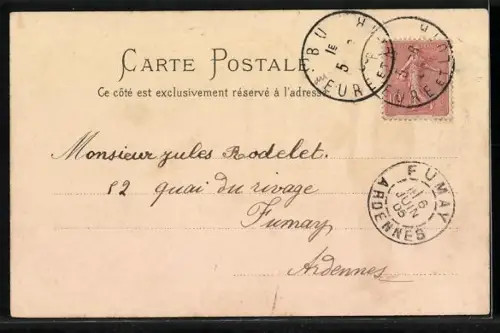 CARTE POSTALE
Ce côté est exclusivement réservé à l'adresse
Monsieur Jules Rodelet.
12 quai du rivage
Fumay
Ardennes
BU
1E
5
EURE ET
EURE ET LOIR
FUMAY
6
JUIN
05
ARDENNES